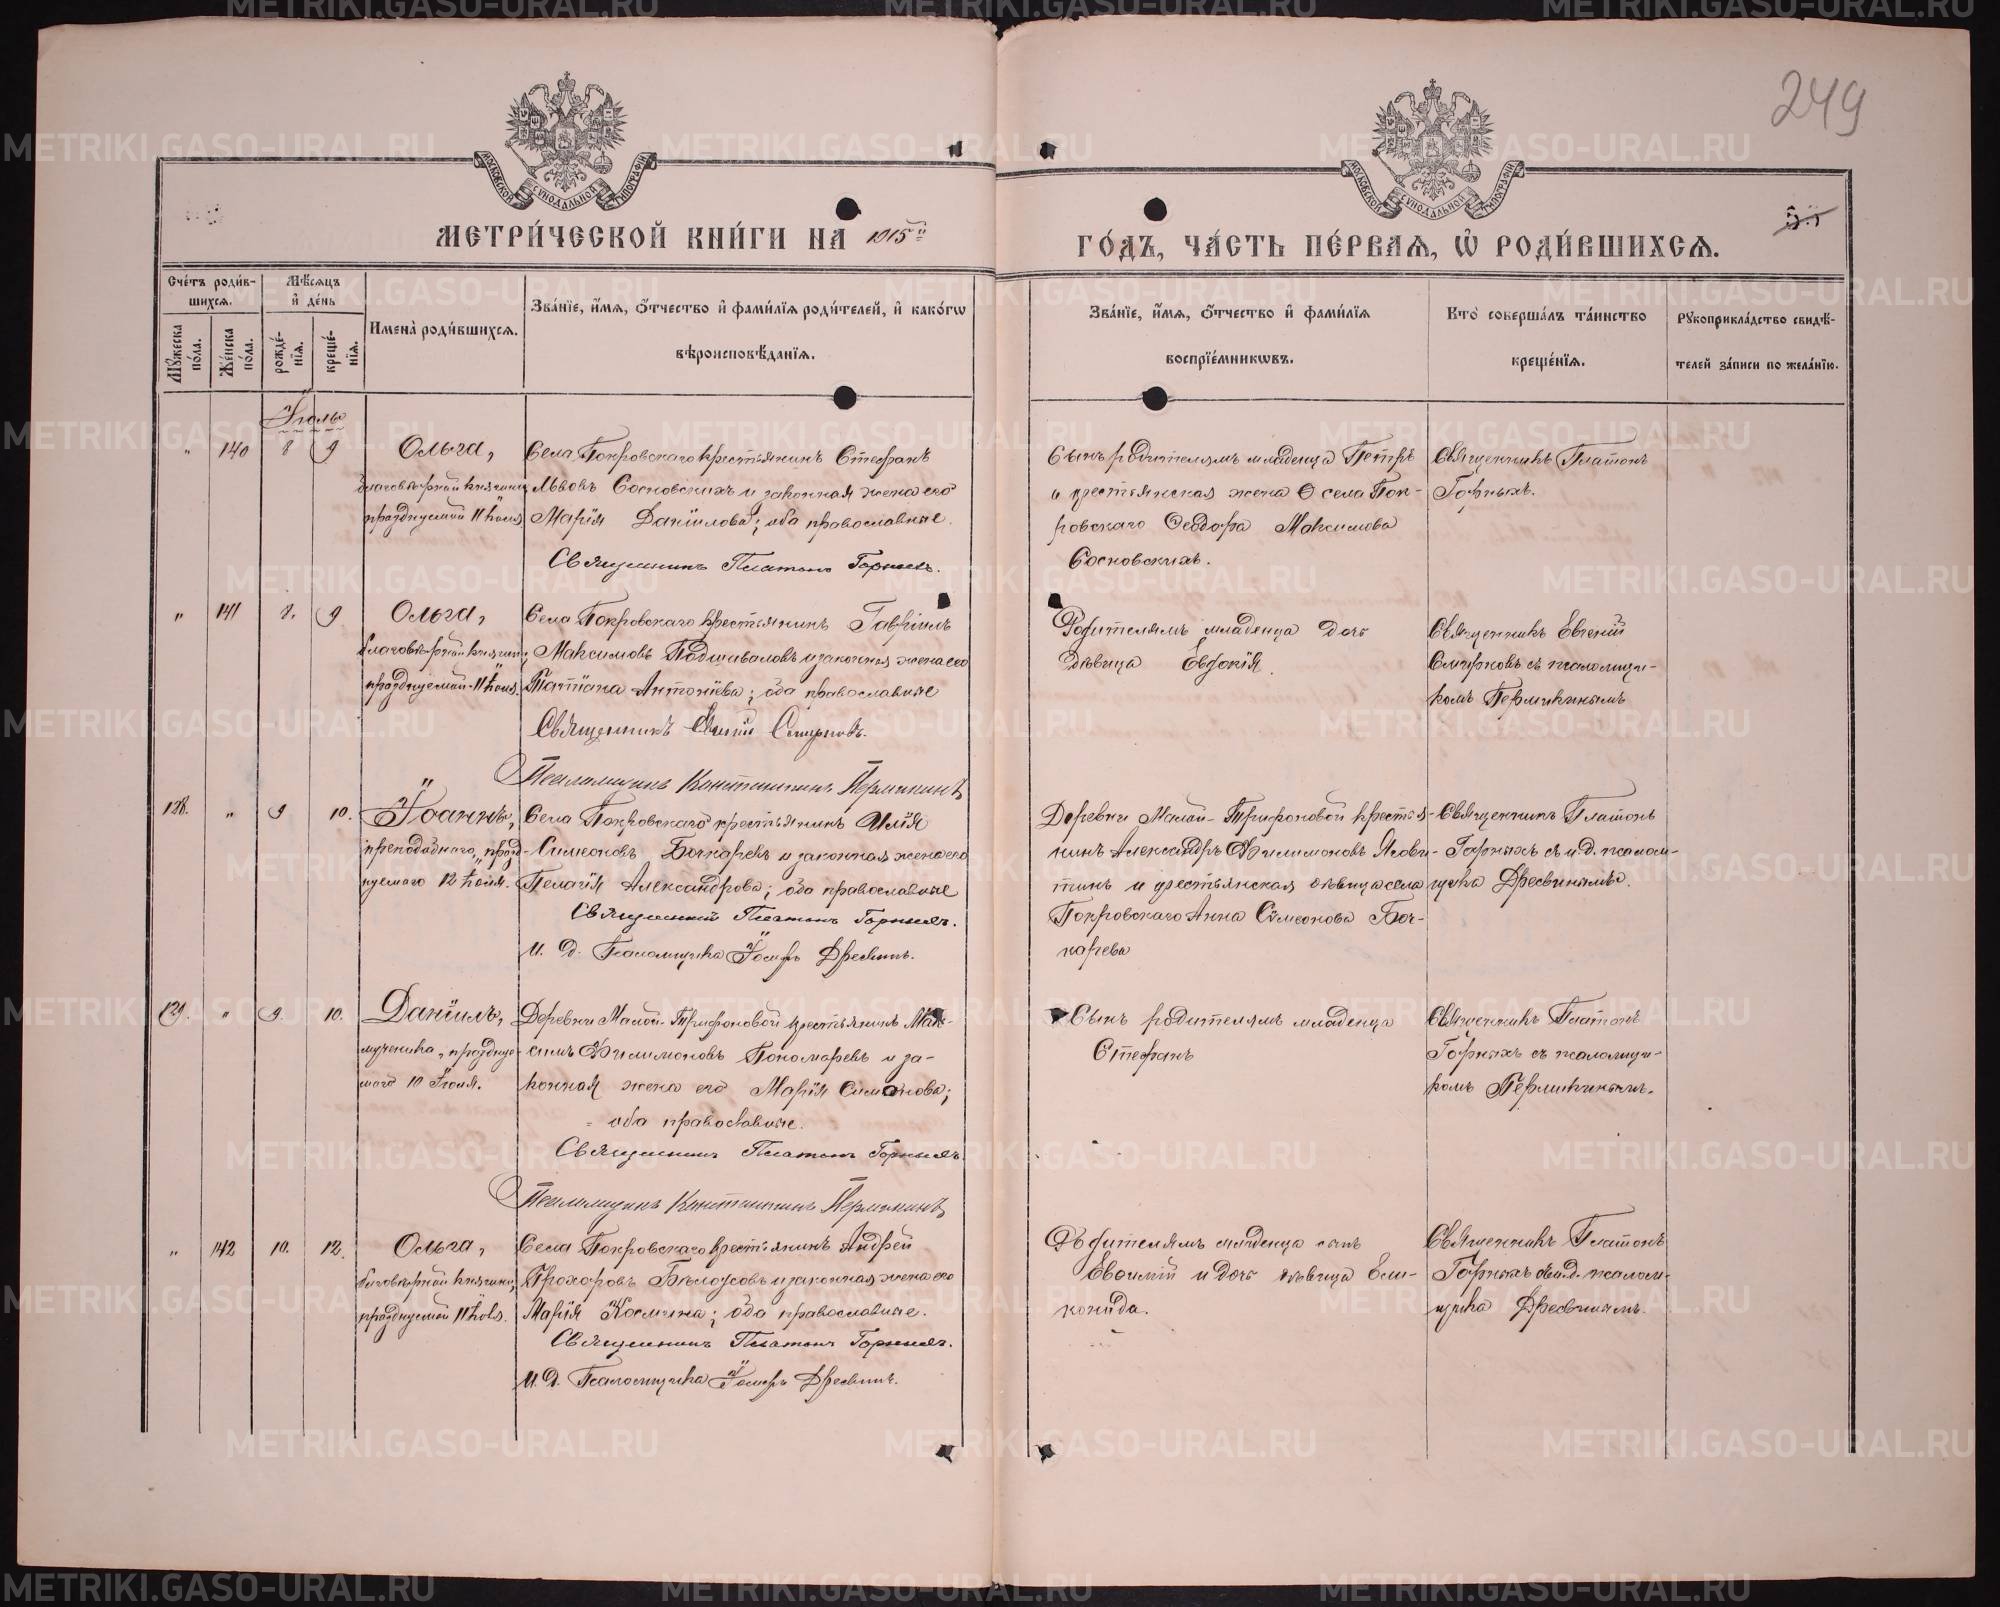 249
МОСКОВСКОЙ СѴНОДАЛЬНОЙ ТИПОГРАФІИ
МОСКОВСКОЙ СѴНОДАЛЬНОЙ ТИПОГРАФІИ
МЕТРИ́ЧЕСКОЙ КНИ́ГИ НА 1915й
ГО́ДЪ, ЧА́СТЬ ПЕ́РВАѦ, Ѡ҆ РОДИ́ВШИХСѦ.
Сче́тъ роди́в-
шихсѧ.
Мѣ́сѧцъ
и҆ де́нь
Мꙋжеска
по́ла.
Же́нска
по́ла.
рожде́-
нїѧ.
креще́-
нїѧ.
Имена̀ роди́вшихсѧ.
Зва́нїе, и҆́мѧ, ѻ҆́тчество и҆ фами́лїѧ роди́телей, и҆ како́гѡ
вѣроисповѣ́данїѧ.
Зва́нїе, и҆́мѧ, ѻ҆́тчество и҆ фами́лїѧ
воспрїе́мникѡвъ.
Кто̀ соверша́лъ та́инство
креще́нїѧ.
Рꙋкоприкла́дство свидѣ́-
телей за́писи по жела́нїю.
Іюль
" 140 8 9
Ольга,
благовѣрной княгини,
празднуемой 11 Іюля
Села Покровскаго крестьянинъ Стефанъ
Львовъ Сосновскихъ и законная жена его
Марія Даніилова; оба православные.
Священникъ Платонъ Горныхъ.
Сынъ родителямъ младенца Петръ
и крестьянская жена села Пок-
ровскаго Ѳеодора Максимова
Сосновскихъ.
Священникъ Платонъ
Горныхъ.
" 141 8. 9
Ольга,
благовѣрной княгини,
празднуемой 11 Іюля.
Села Покровскаго крестьянинъ Гавріилъ
Максимовъ Подшиваловъ и законная жена его
Татіана Антоніева; оба православные
Священникъ Евгеній Смирновъ.
Псаломщикъ Константинъ Пермикинъ
Родителямъ младенца дочь
дѣвица Евдокія.
Священникъ Евгеній
Смирновъ съ псаломщи-
комъ Пермикинымъ
128. " 9 10.
Іоаннъ,
преподобнаго, празд-
нуемаго 12 Іюля.
Села Покровскаго крестьянинъ Илія
Симеоновъ Бочкаревъ и законная жена его
Пелагія Александрова; оба православные
Священникъ Платонъ Горныхъ.
И. д. Псаломщика Іосифъ Дресвинъ.
Деревни Малой-Трифоновой крестья-
нинъ Александръ Филимоновъ
и крестьянская дѣвица села
Покровскаго Анна Симеонова Боч-
карева
Священникъ Платонъ
Горныхъ съ и. д. псалом-
щика Дресвинымъ.
129. " 9. 10.
Даніилъ,
мученика, праздnуе-
маго 10 Іюля.
Деревни Малой-Трифоновой крестьянинъ Мак-
симъ Филимоновъ Пономаревъ и за-
конная жена его Марія Симонова;
оба православные.
Священникъ Платонъ Горныхъ
Псаломщикъ Константинъ Пермикинъ
Сынъ родителямъ младенца
Стефанъ
Священникъ Платонъ
Горныхъ съ псаломщи-
комъ Пермикинымъ.
" 142 10. 12.
Ольга,
благовѣрной княгини,
празднуемой 11 Іюля.
Села Покровскаго крестьянинъ Андрей
Прохоровъ Бѣлоусовъ и законная жена его
Марія Космина; оба православные.
Священникъ Платонъ Горныхъ.
И. д. Псаломщика Іосифъ Дресвинъ.
Родителямъ младенца сынъ
и дочь дѣвица Ели-
конида.
Священникъ Платонъ
Горныхъ съ и. д. псалом-
щика Дресвинымъ.
METRIKI.GASO-URAL.RU